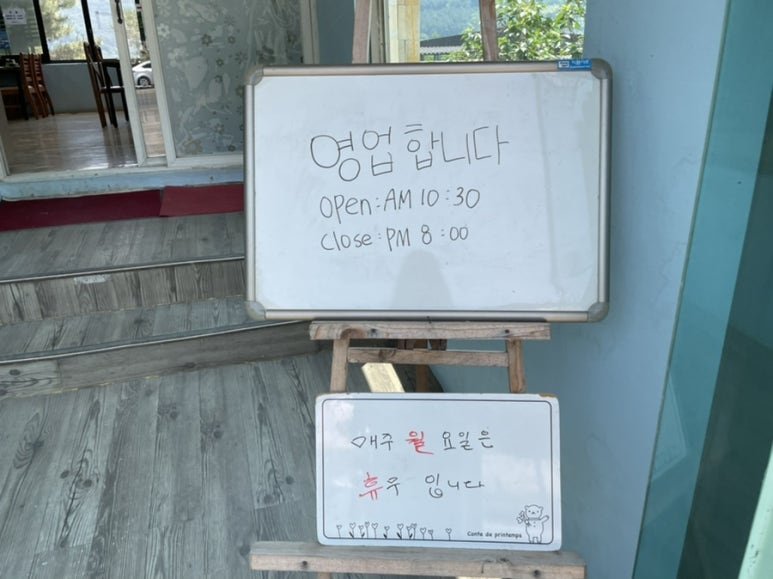 영업합니다
OPen:AM 10:30
Close:PM 8:00
매주 월 요일은
휴우 입니다
Conte de printemps